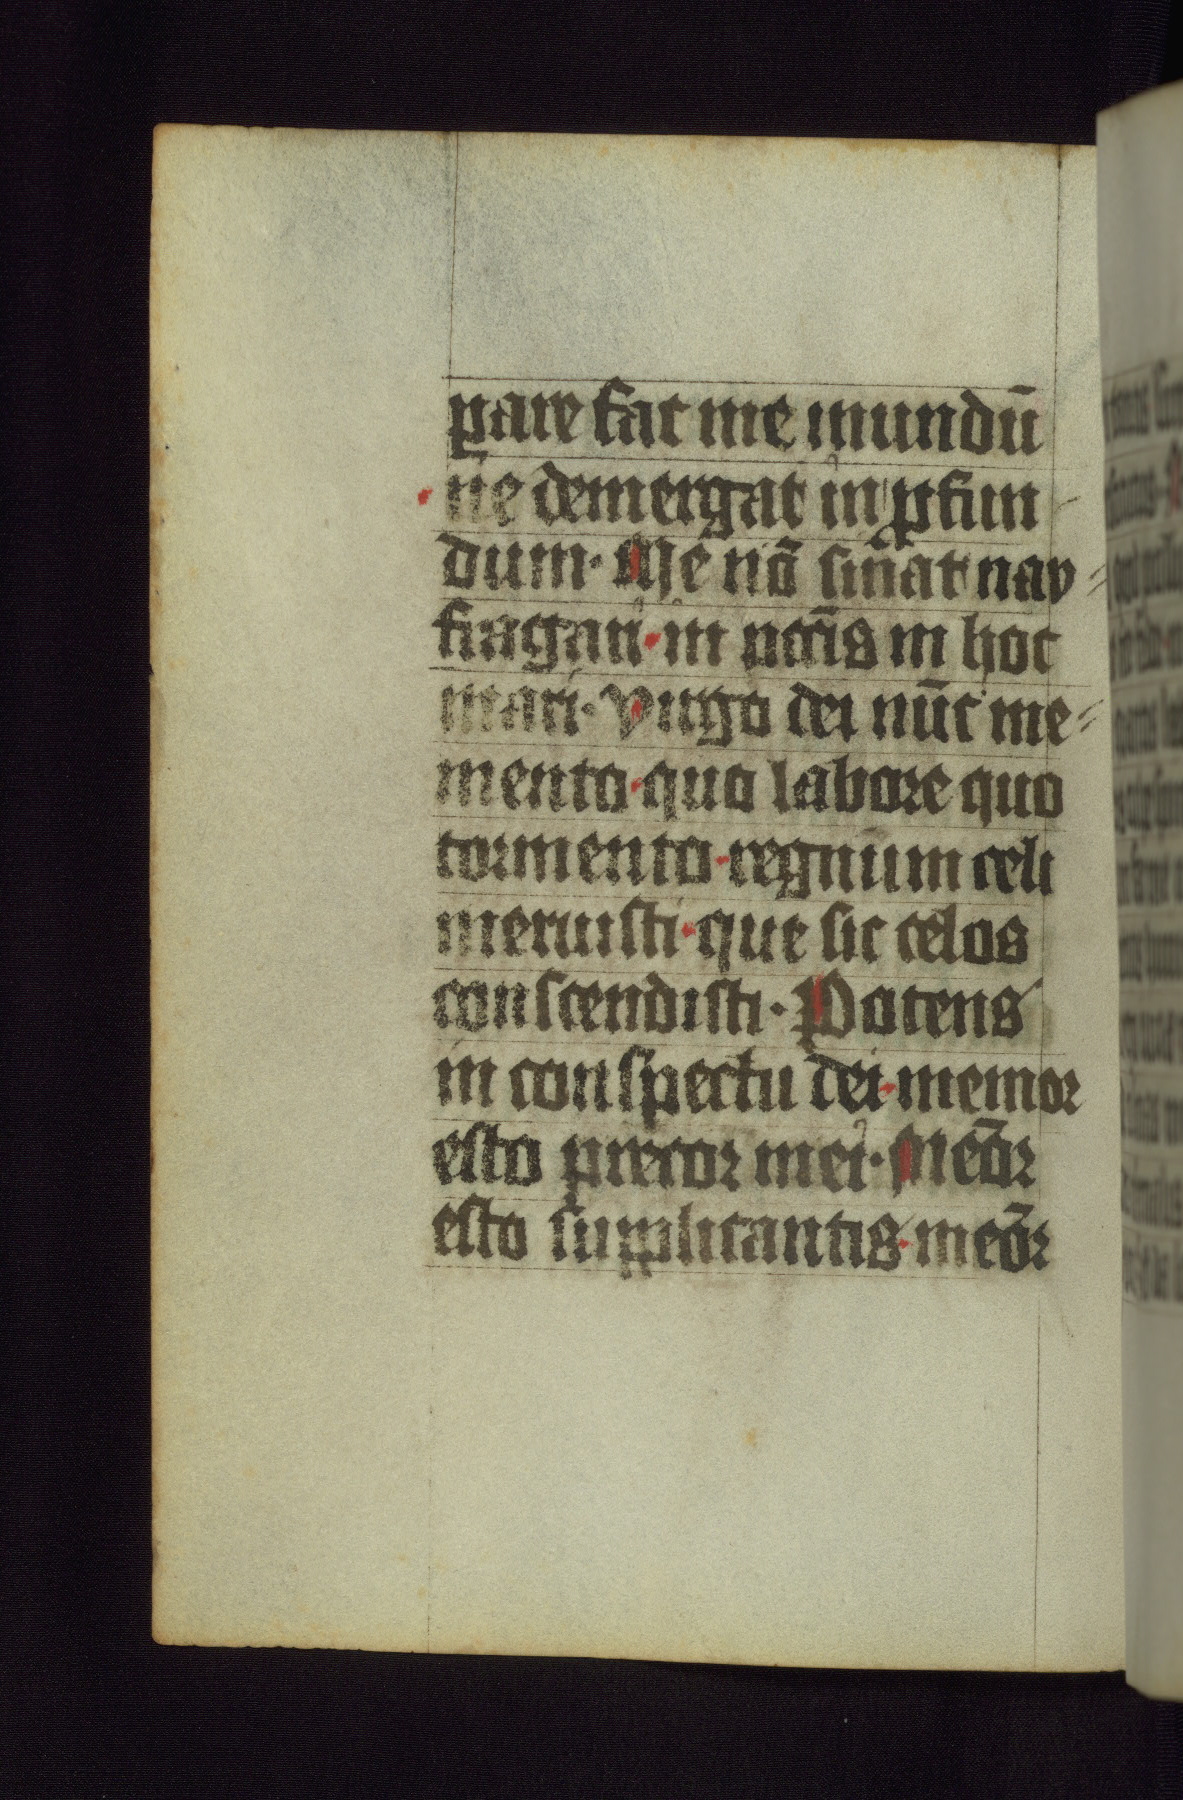 pare fac me mundū
ne demergat in ꝓfun
dum· Me nō sināt nau
fragari· in pctīs in hoc
mari· Virgo dei nūc me
mento· quo labore quo
tormento· regnum celi
meruisti· que sic celos
conscendisti· Potens
in conspectu dei· memor
esto precor mei· Meōr
esto supplicantis· meōr